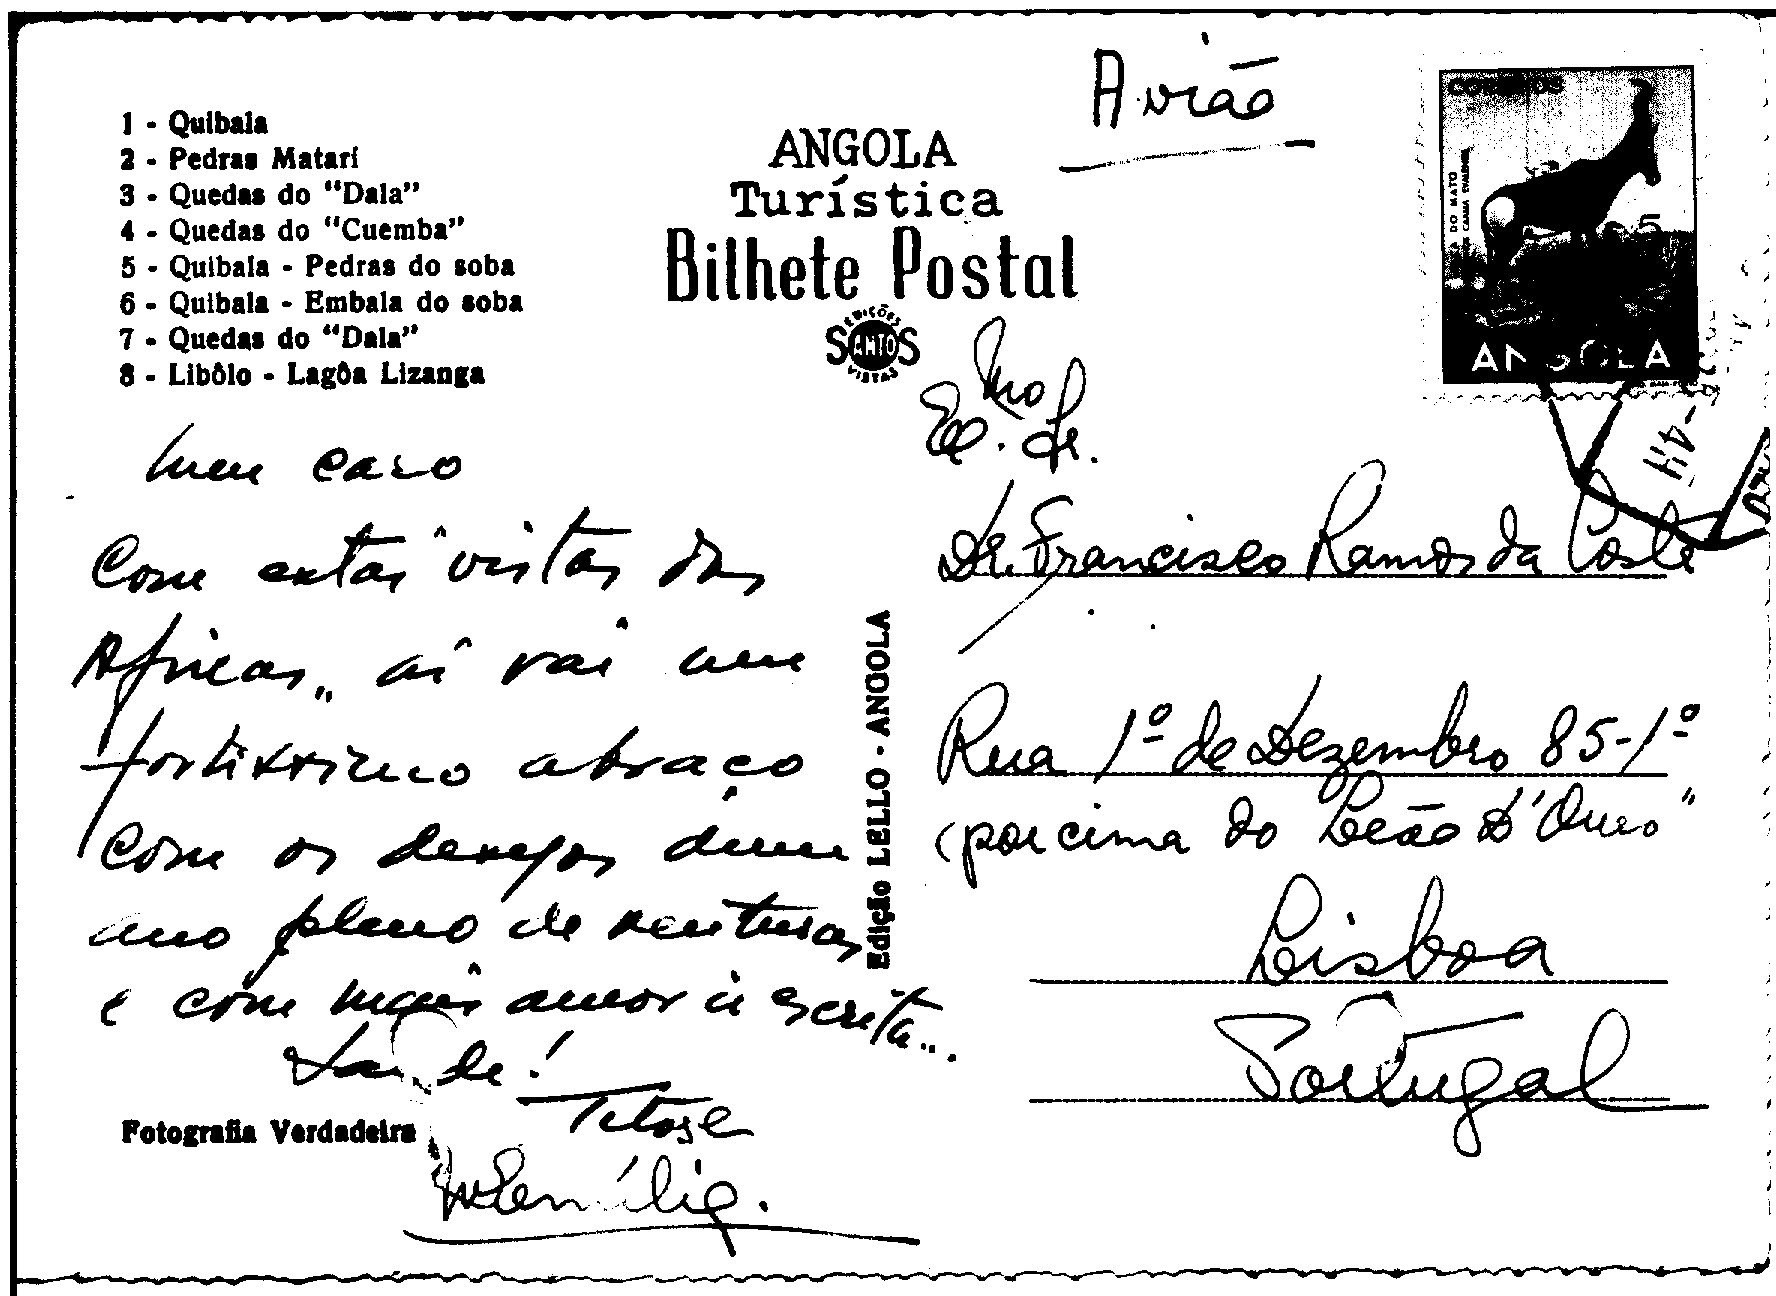 1 - Quibala
2 - Pedras Matari
3 - Quedas do "Dala"
4 - Quedas do "Cuemba"
5 - Quibala - Pedras do soba
6 - Quibala - Embala do soba
7 - Quedas do "Dala"
8 - Libôlo - Lagôa Lizanga
ANGOLA
Turística
Bilhete Postal
EDIÇÕES
SANTOS
VISTAS
Avião
CORREIOS
ANGOLA
Meu caro
Com estas vistas das
Africas, aí vai um
fortissimo abraço
com os desejos dum
ano pleno de venturas
e com mais amor à escrita...
Saúde!
Fotografia Verdadeira
Edição LELLO - ANGOLA
Exmo Sr.
Dr. Francisco Ramos da Costa
Rua 1º de Dezembro 85-1º
(por cima do Leão D'Ouro"
Lisboa
Portugal